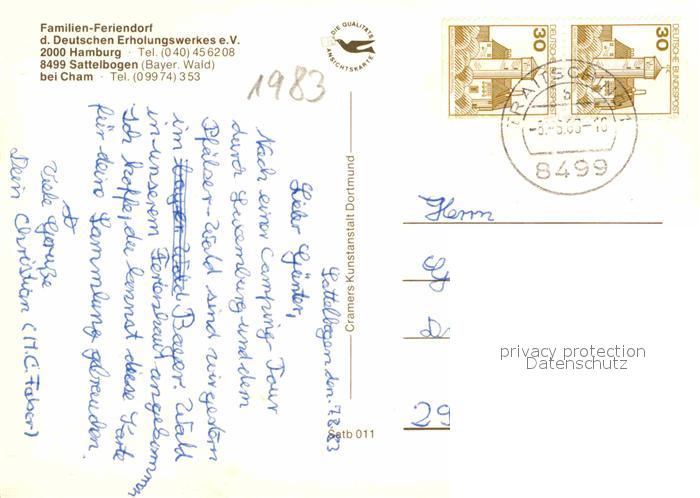 Familien-Feriendorf
d. Deutschen Erholungswerkes e.V.
2000 Hamburg · Tel. (0 40) 45 62 08
8499 Sattelbogen (Bayer. Wald)
bei Cham · Tel. (0 99 74) 3 53
DIE QUALITÄTS
ANSICHTSKARTE
1983
30
DEUTSCHE BUNDESPOST
30
DEUTSCHE BUNDESPOST
8499
Sattelbogen den
Lieber Günter,
Nach einer Camping Tour
durch Luxemburg und dem
Pfälzer-Wald sind wir gestern
im Bayer Wald
in unserem Ferienhaus angekommen
Ich hoffe, du kannst diese Karte
für deine Sammlung gebrauchen.
Viele Grüße
Dein Christian (H.C. Faber)
Cramers Kunstanstalt Dortmund
Satb 011
Herrn
29
privacy protection
Datenschutz